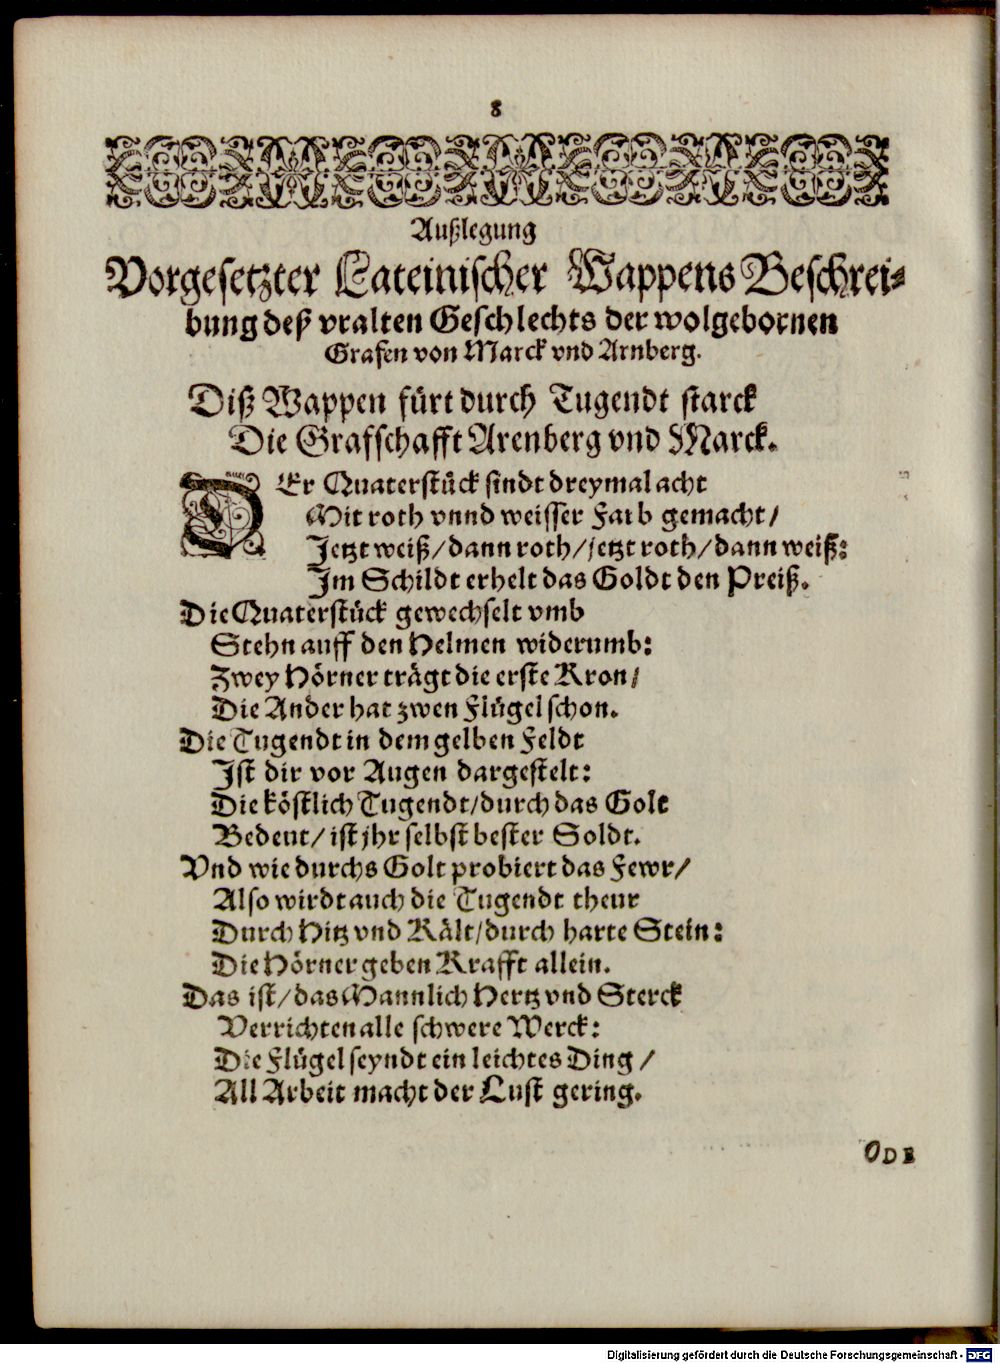 8
Außlegung
Vorgesetzter Lateinischer Wappens Beschrei-
bung deß vralten Geschlechts der wolgebornen
Grafen von Marck vnd Arnberg.
Diß Wappen fürt durch Tugendt starck
Die Grafschafft Arenberg vnd Marck.
DEr Quaterstück sindt dreymal acht
Mit roth vnnd weisser Farb gemacht/
Jetzt weiß/dann roth/jetzt roth/dann weiß:
Im Schildt erhelt das Goldt den Preiß.
Die Quaterstück gewechselt vmb
Stehn auff den Helmen widerumb:
Zwey Hörner trägt die erste Kron/
Die Ander hat zwen Flügel schon.
Die Tugendt in dem gelben Feldt
Ist dir vor Augen dargestelt:
Die köstlich Tugendt/durch das Golt
Bedeut/ist jhr selbst bester Soldt.
Vnd wie durchs Golt probiert das Fewr/
Also wirdt auch die Tugendt theur
Durch Hitz vnd Kält/durch harte Stein:
Die Hörner geben Krafft allein.
Das ist/das Mannlich Hertz vnd Sterck
Verrichten alle schwere Werck:
Die Flügel seyndt ein leichtes Ding/
All Arbeit macht der Lust gering.
ODE
Digitalisierung gefördert durch die Deutsche Forschungsgemeinschaft - DFG